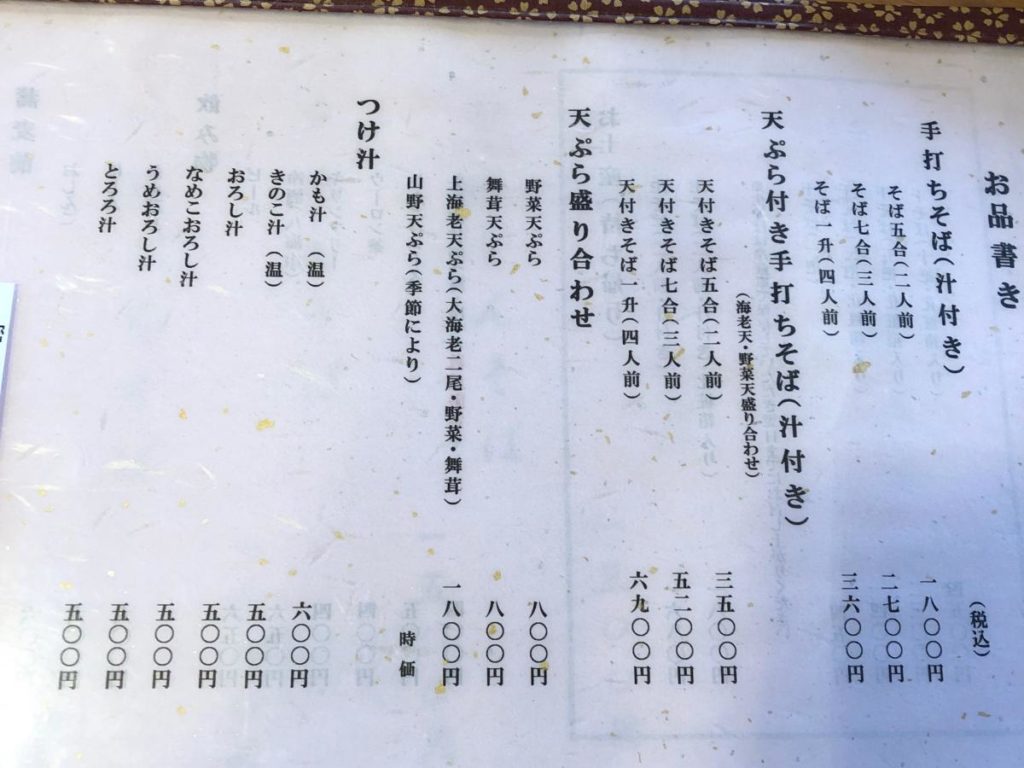 お品書き
（税込）
手打ちそば（汁付き）
そば五合（二人前） 一八〇〇円
そば七合（三人前） 二七〇〇円
そば一升（四人前） 三六〇〇円
天ぷら付き手打ちそば（汁付き）
（海老天・野菜天盛り合わせ）
天付きそば五合（二人前） 三五〇〇円
天付きそば七合（三人前） 五二〇〇円
天付きそば一升（四人前） 六九〇〇円
天ぷら盛り合わせ
野菜天ぷら 八〇〇円
舞茸天ぷら 八〇〇円
上海老天ぷら（大海老二尾・野菜・舞茸） 一八〇〇円
山野天ぷら（季節により） 時価
つけ汁
かも汁（温） 六〇〇円
きのこ汁（温） 五〇〇円
おろし汁 五〇〇円
なめこおろし汁 五〇〇円
うめおろし汁 五〇〇円
とろろ汁 五〇〇円